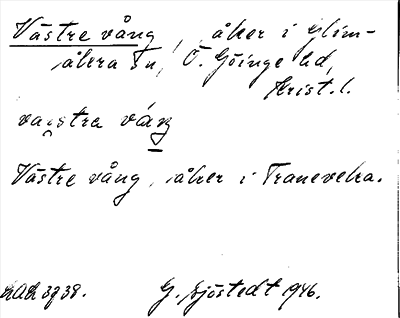 Västre vång, åker i Glim-
åkra sn, Ö. Göinge hd,
Krist. l.
vång
Västre vång, åker i Tranevekra.
G. Sjöstedt 1946.